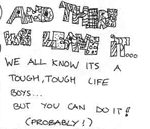 AND THEN
WE LEAVE IT...
WE ALL KNOW ITS A
TOUGH, TOUGH LIFE
BOYS...
BUT YOU CAN DO IT!
(PROBABLY!)